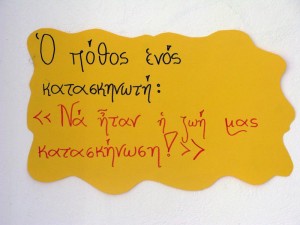 Ὁ πόθος ἑνός
κατασκηνωτή:
<< Νά ἦταν ἡ ζωή μας
κατασκήνωση! >>